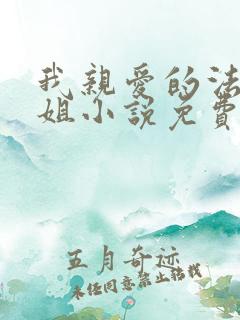 我親愛的法
姐小說免費
五月奇迹
未经同意禁止转载